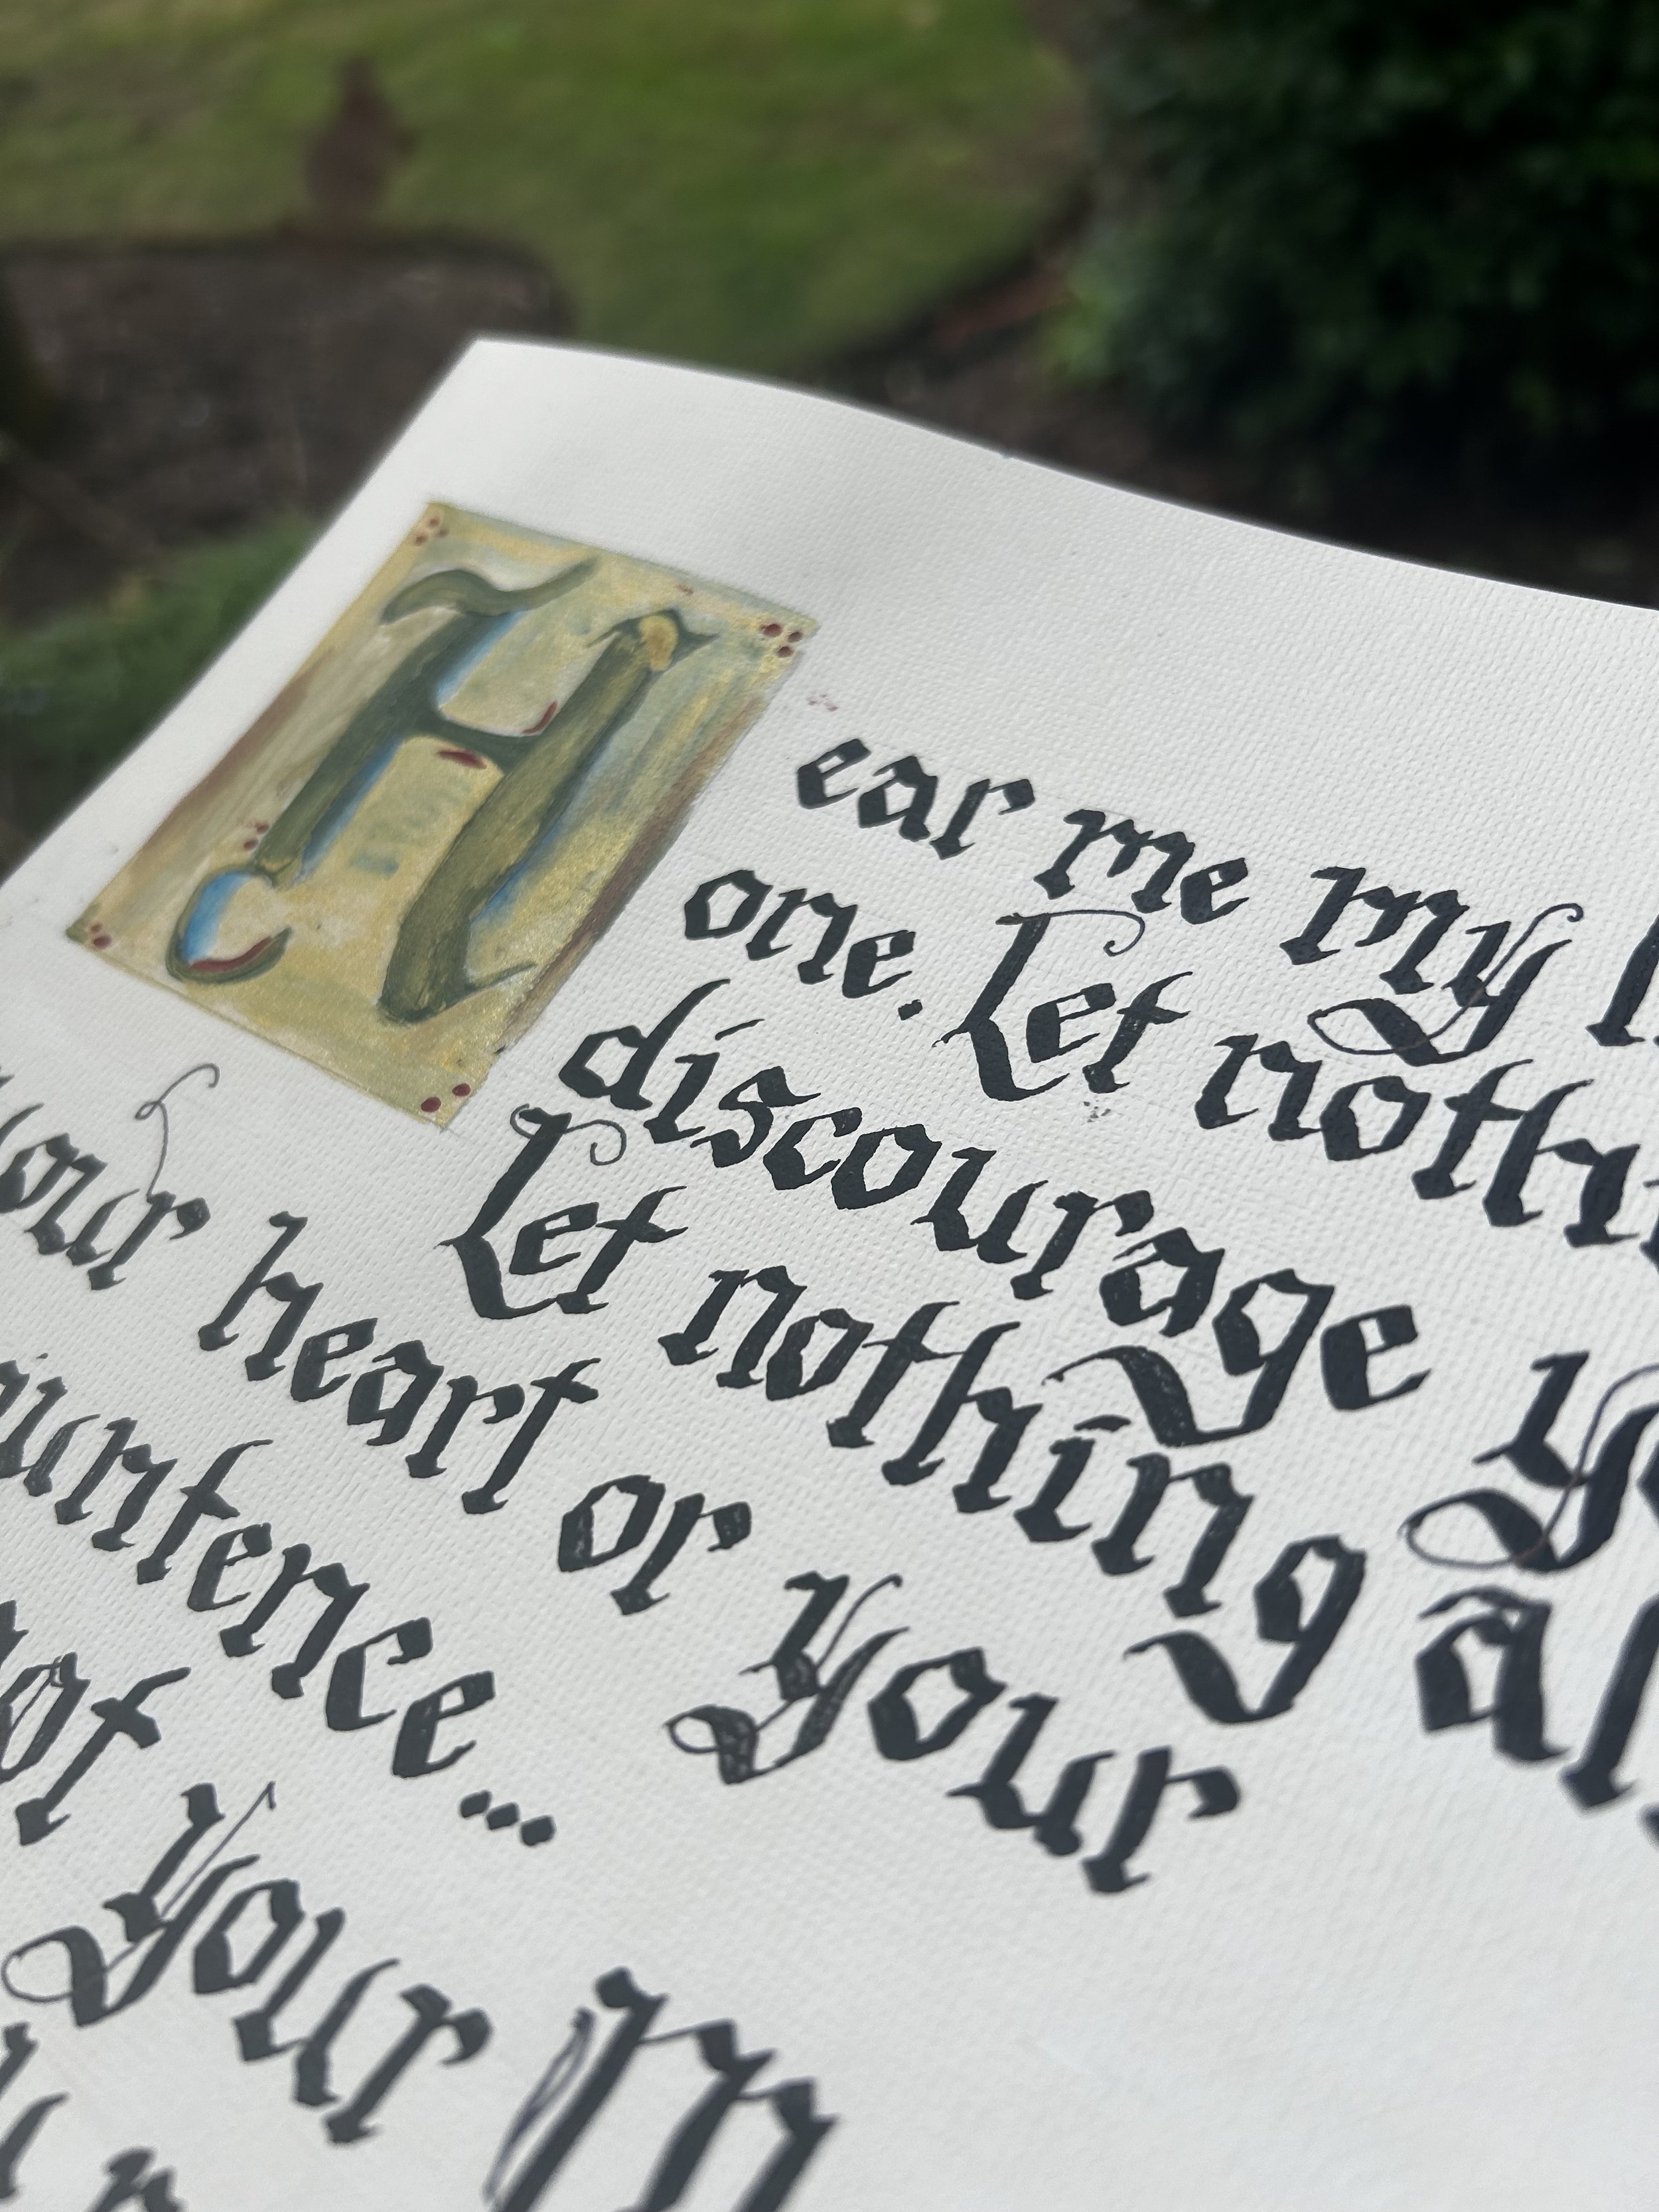 Hear me my l
one. Let nothi
discourage yo
Let nothing al
your heart or your
untence...
ot your m